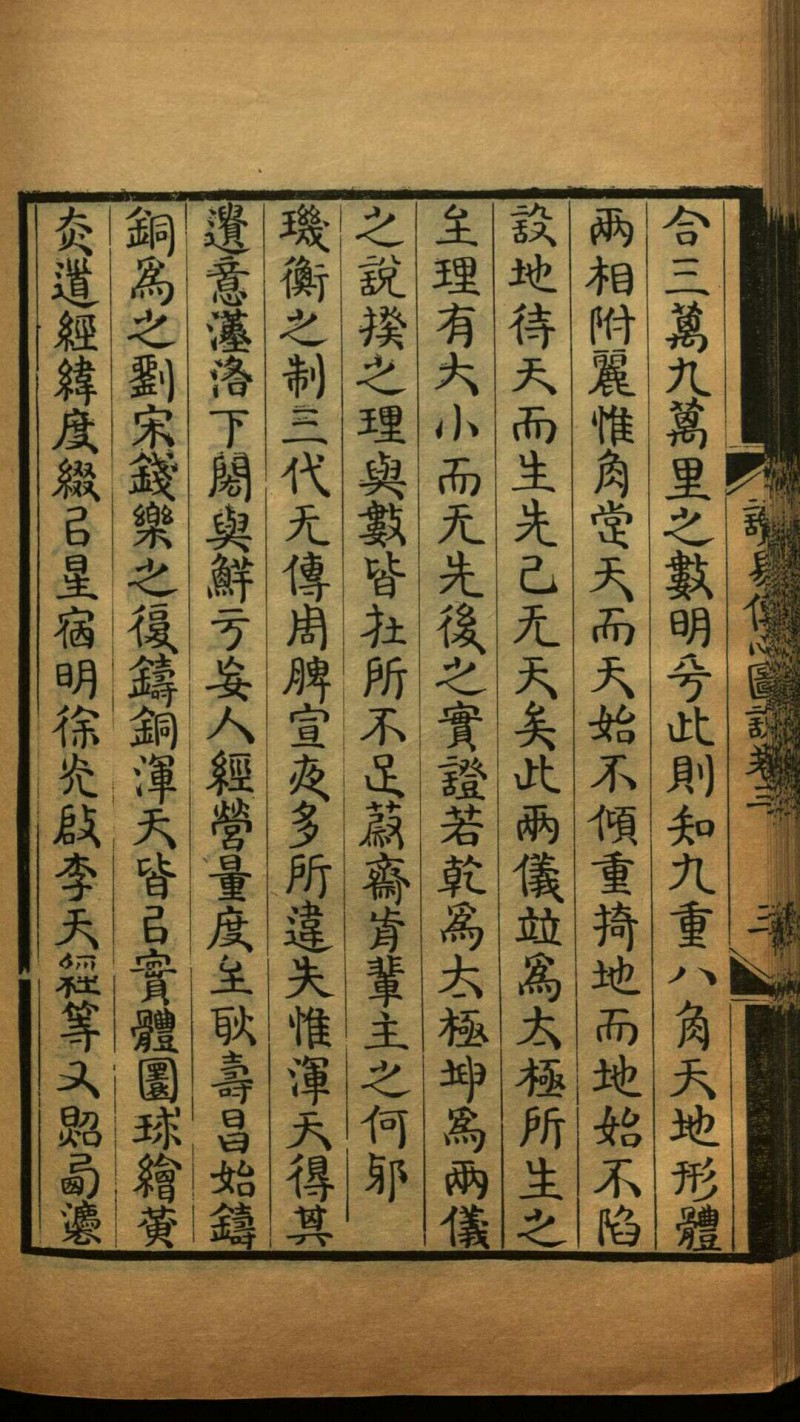 合三萬九萬里之數明兮此則知九重八角天地形體
兩相附麗惟角堂天而天始不傾重掎地而地始不陷
設地待天而生先己无天矣此兩儀竝爲太極所生之
至理有大小而无先後之實證若乾爲太極坤爲兩儀
之說揆之理與數皆在所不足蔽齋肯輩主之何邪
璣衡之制三代无傳周脾宣夜多所違失惟渾天得其
遺意漢洛下閎與鮮亏妄人經營量度至耿壽昌始鑄
銅爲之劉宋錢樂之復鑄銅渾天皆㠯實體圜球繪黃
赤道經緯度綴㠯星宿明徐光啟李天經等又
說易傳心圖說卷三
二